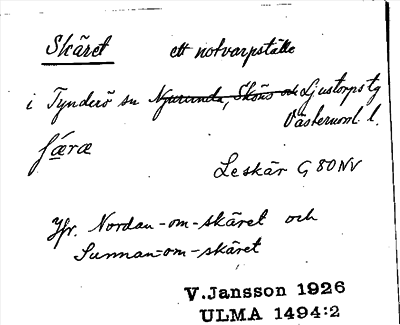 Skäret ett notvarpställe
i Tynderö sn Njurunda, Sköns och Ljustorps tg
Västernorrl. l.
ʃǽræ
Leskär G 80 NV
Jfr. Nordan-om-skäret och
Sunnan-om-skäret
V.Jansson 1926
ULMA 1494:2